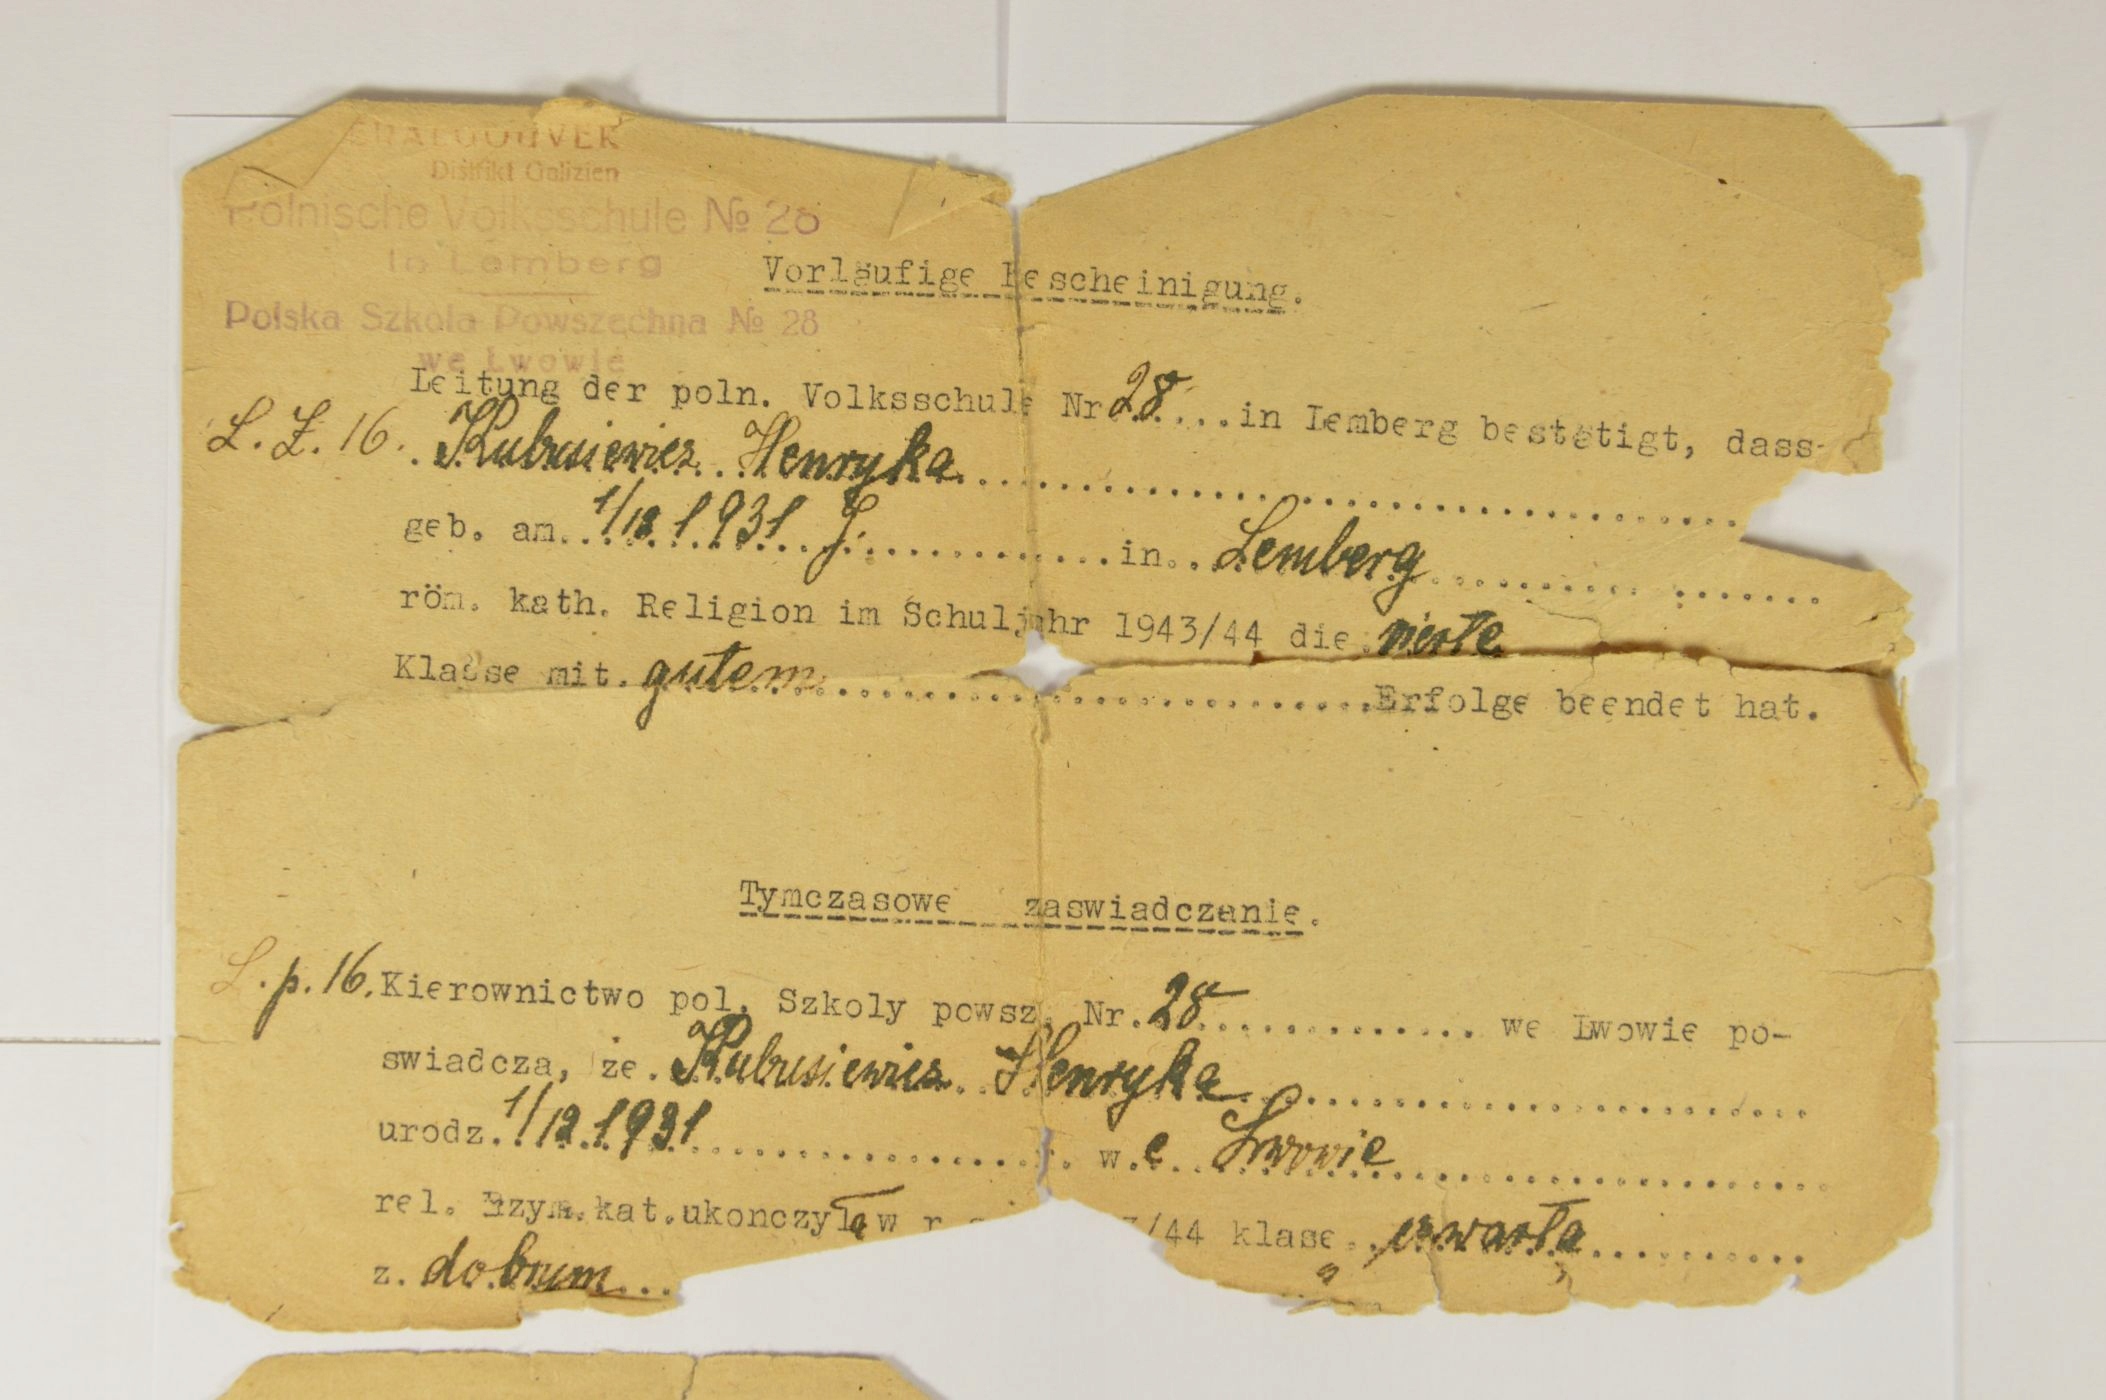 ERALGOUVER
Distrikt Galizien
Polnische Volksschule № 28
in Lemberg
Polska Szkoła Powszechna № 28
we Lwowie
Vorläufige Bescheinigung.
Leitung der poln. Volksschule Nr 28....in Lemberg bestätigt, dass
L. Z. 16. Kubusiewicz Henryka
geb. am 1/12 1931 J. in Lemberg
röm. kath. Religion im Schuljahr 1943/44 die vierte
Klasse mit gutem Erfolge beendet hat.
Tymczasowe zaswiadczenie.
L. p. 16. Kierownictwo pol. Szkoly powsz. Nr. 28 we Lwowie po-
swiadcza, że Kubusiewicz Henryka
urodz. 1/12 1931 w.e Lwowie
rel. Rzym.kat.ukonczyła w r /44 klase czwartą
z. dobrym...